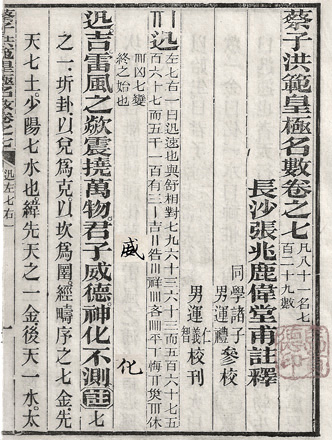 蔡子洪範皇極名數卷之七 凡八十一名七百二十九數
長沙張兆鹿偉堂甫註釋
同學諸子參校
男運 校刊
迅 左七右一曰迅速也與舒相對七九六十三六十三而五百六十七五
百六十七而五千一百有三 吉 咎 祥 吝 平 悔 災 休
凶七變
終之始也
威 化
迅吉雷風之欻震撓萬物君子威德神化不測註七
之一圻卦以兌爲克以坎爲闓經疇序之七金先
天七土少陽七水也緯先天之一金後天一水太
蔡子洪範皇極名數卷之七 迅左七右一